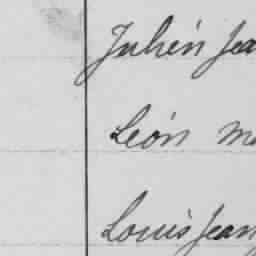 Julien Jea
Léon Ma
Louis Jean